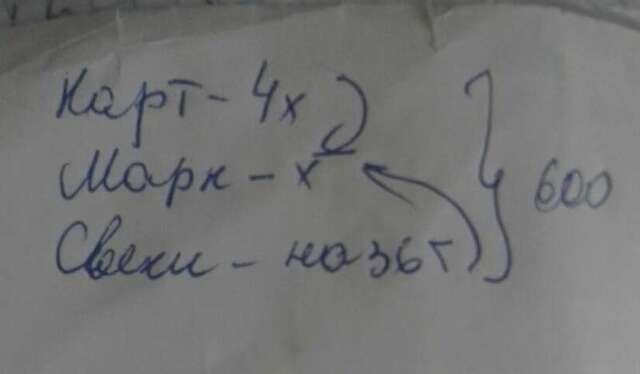 Карт - 4х
Морк - х
Свеклы - на 36 т
600